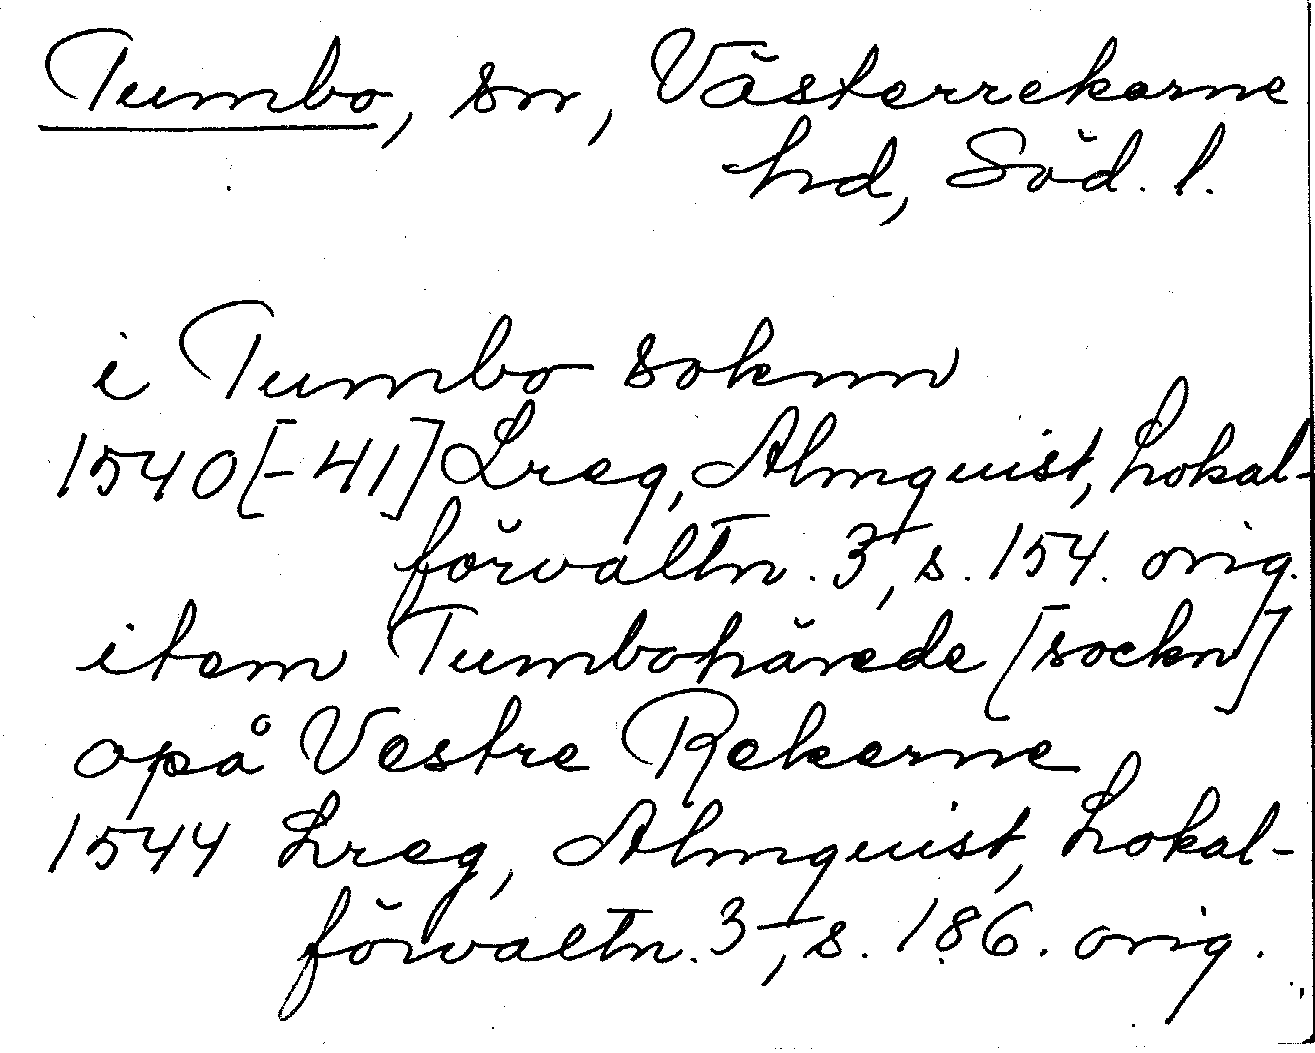 Tumbo, sn, Västerrekarne
hd, Söd. l.
i Tumbo soknn
1540[-41] Lreg, Almquist, Lokal-
förvaltn. 3, s. 154. orig.
item Tumbohärede [sockn]
opå Vestre Rekerne
1544 Lreg, Almquist, Lokal-
förvaltn. 3, s. 186. orig.